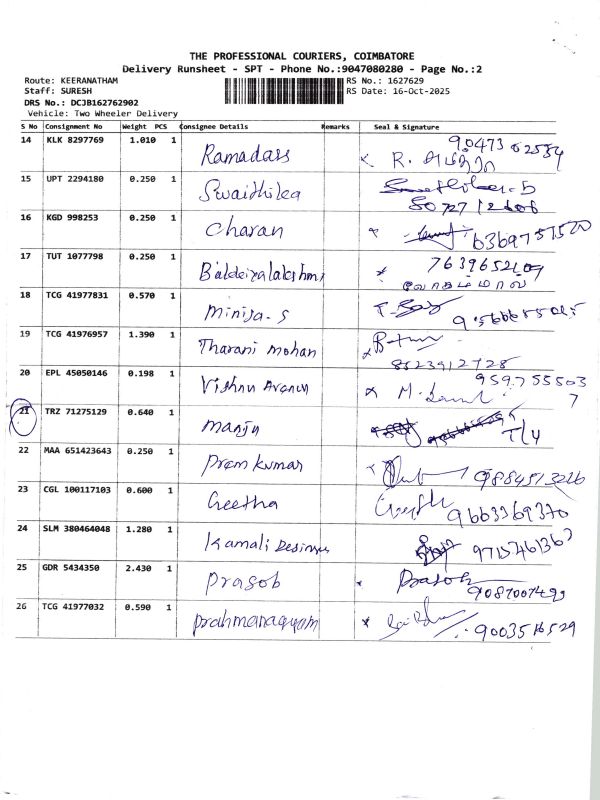 THE PROFESSIONAL COURIERS, COIMBATORE
Delivery Runsheet - SPT - Phone No.:9047080280 - Page No.:2
Route: KEERANATHAM RS No.: 1627629
Staff: SURESH RS Date: 16-Oct-2025
DRS No.: DCJB162762902
Vehicle: Two Wheeler Delivery
S No Consignment No Weight PCS Consignee Details Remarks Seal & Signature
14 KLK 8297769 1.010 1 Ramadass R.
15 UPT 2294180 0.250 1
16 KGD 998253 0.250 1 Charan 6369757520
17 TUT 1077798 0.250 1 7639652109
18 TCG 41977831 0.570 1 Minija-S
19 TCG 41976957 1.390 1 Tharani mohan 8523912728
20 EPL 45050146 0.198 1 Vishnu 9597555037
21 TRZ 71275129 0.640 1 manju T/4
22 MAA 651423643 0.250 1 Prem kumar 9884513226
23 CGL 100117103 0.600 1 Geetha Geetha 9663369370
24 SLM 380464048 1.280 1 Kamali 9715461367
25 GDR 5434350 2.430 1 Prasob Prasob 9087007499
26 TCG 41977032 0.590 1 9003516529